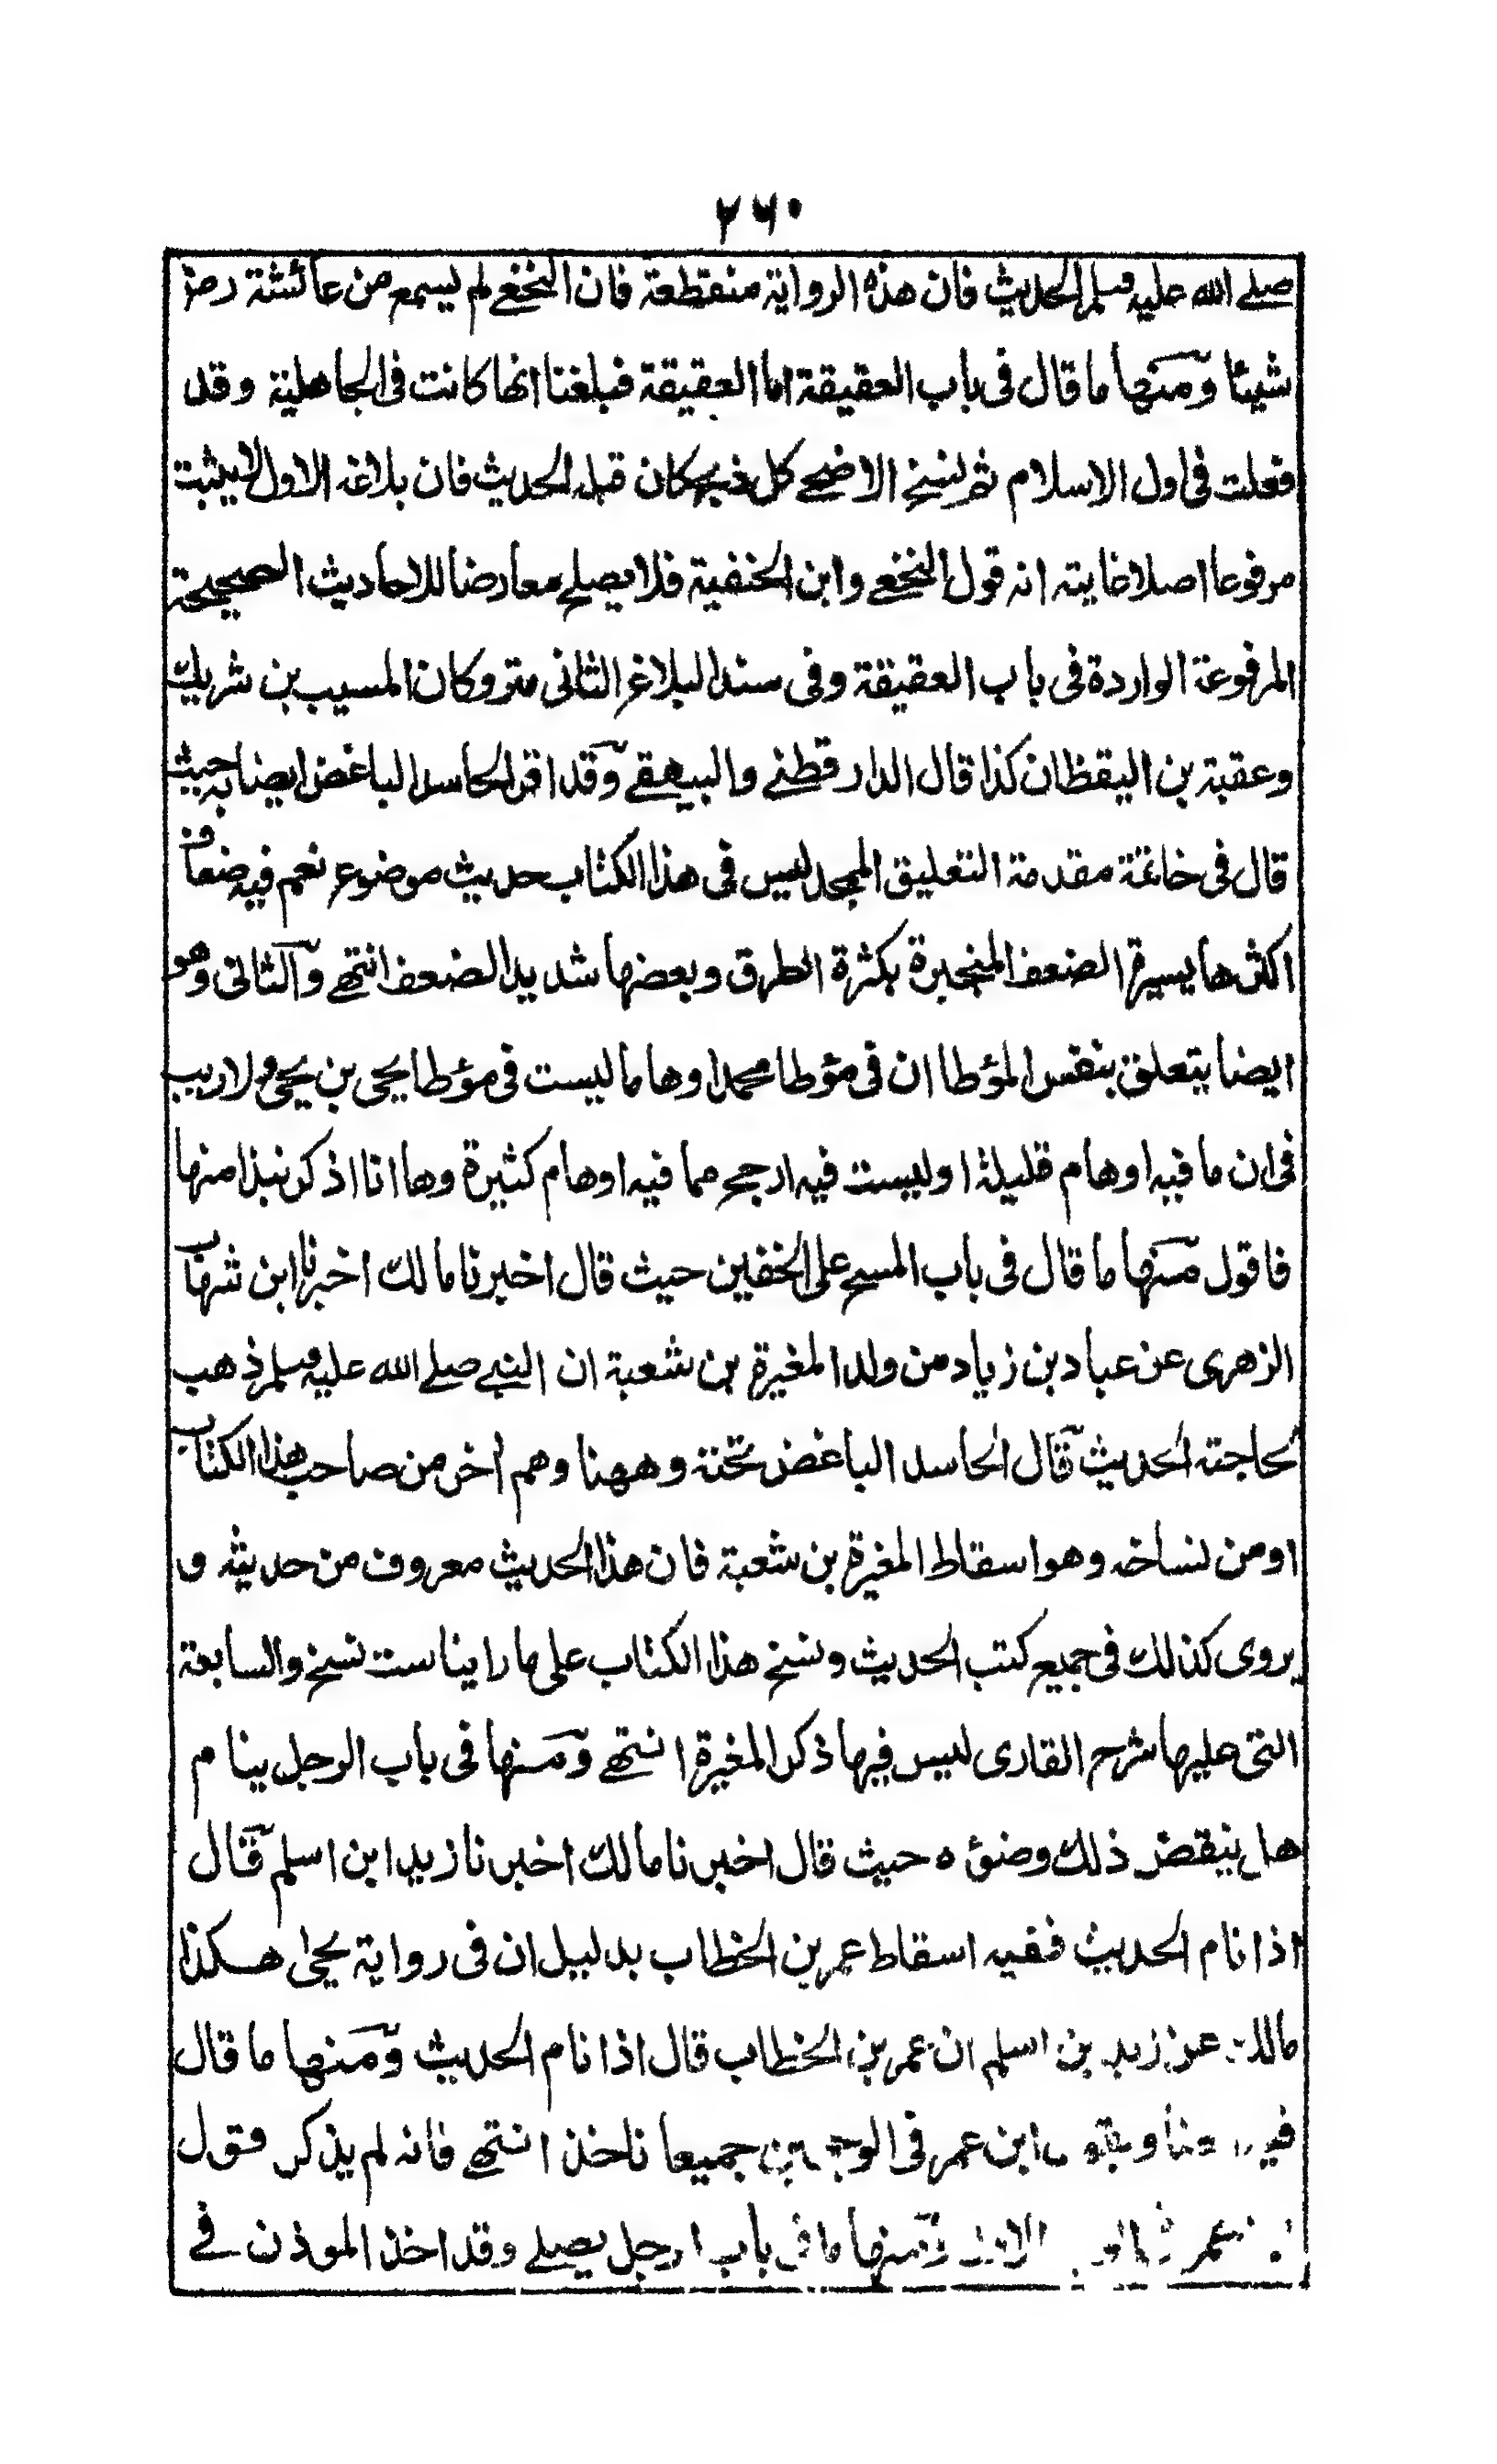 ٢٦٠
صلے الله عليه وسلم الحديث فان هذه الرواية منقطعة فان النخعے لم يسمع من عائشة رضـ
شيئا ومنها ما قال فى باب العقيقة اما العقيقة فبلغنا انها كانت فى الجاهلية وقد
فعلت فى اول الاسلام ثم نسخ الاضحے كل ذبح كان قبله الحديث فان بلاغه الاول لا يثبت
مرفوعا اصلا غايته انه قول النخعے وابن الحنفية فلا يصلح معارضا للاحاديث الصحيحة
المرفوعة الواردة فى باب العقيقة وفى سند البلاغ الثانى متروكان المسيب بن شريك
وعقبة بن اليقظان كذا قال الدارقطنے والبيهقے وقد اقر الحاسد الباغض ايضا به حيث
قال فى خاتمة مقدمة التعليق الممجد ليس فى هذا الكتاب حديث موضوع نعم فيه ضعاف
اكثرها يسيرة الضعف المنجبرة بكثرة الطرق وبعضها شديد الضعف انتهے والثانى وهو
ايضا يتعلق بنفس المؤطا ان فى مؤطا محمد اوهاما ليست فى مؤطا يحيى بن يحيى ولا ريب
فى ان ما فيه اوهام قليلة او ليست فيه ارجح مما فيه اوهام كثيرة وها انا اذكر نبذا منها
فاقول منها ما قال فى باب المسح على الخفين حيث قال اخبرنا مالك اخبرنا ابن شهاب
الزهرى عن عباد بن زياد من ولد المغيرة بن شعبة ان النبے صلے الله عليه وسلم ذهب
لحاجته الحديث قال الحاسد الباغض تحته وههنا وهم اخر من صاحب هذا الكتاب
او من نساخه وهو اسقاط المغيرة بن شعبة فان هذا الحديث معروف من حديثه و
يروى كذلك فى جميع كتب الحديث ونسخ هذا الكتاب على ما راينا ست نسخ والسابعة
التى عليها شرح القارى ليس فيها ذكر المغيرة انتهے ومنها فى باب الرجل ينام
هل ينقض ذلك وضوءه حيث قال اخبرنا مالك اخبرنا زيد ابن اسلم قال
اذا نام الحديث ففيه اسقاط عمر بن الخطاب بدليل ان فى رواية يحيى هكذا
مالك عن زيد بن اسلم ان عمر بن الخطاب قال اذا نام الحديث ومنها ما قال
وبقول ابن عمر فى الوجهين جميعا ناخذ انتهے فانه لم يذكر قول
عمر ومنها ما فى باب الرجل يصلے وقد اخذ الموذن فے